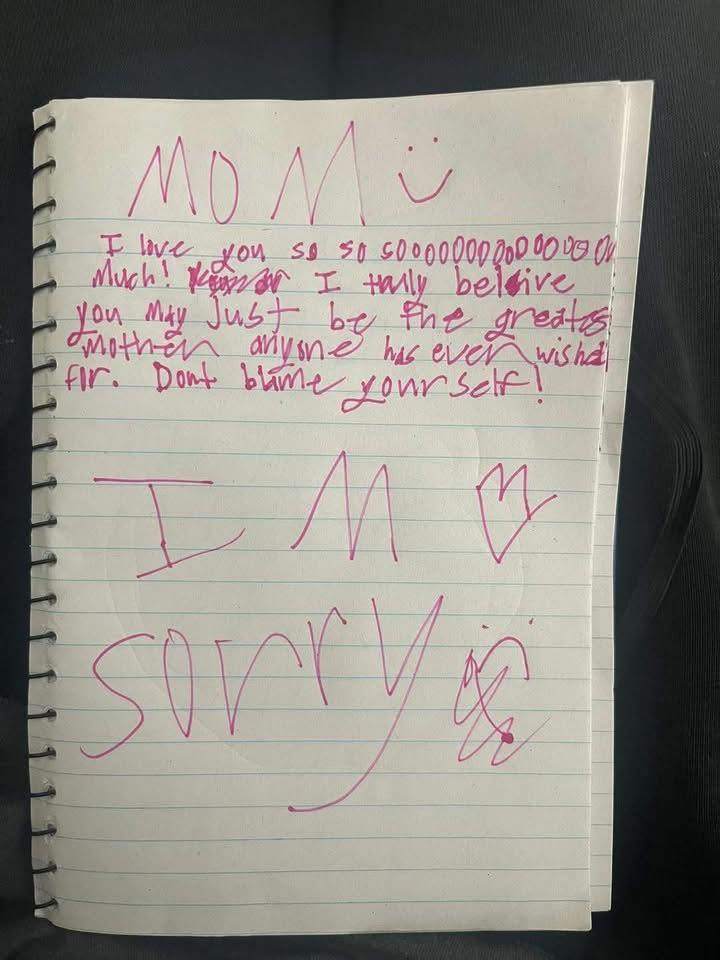 MOM
I love you so so soooooooooooooooo
Much! I truly belive
you May just be the greates
mother anyone has ever wished
for. Dont blame yourself!
I M
sorry